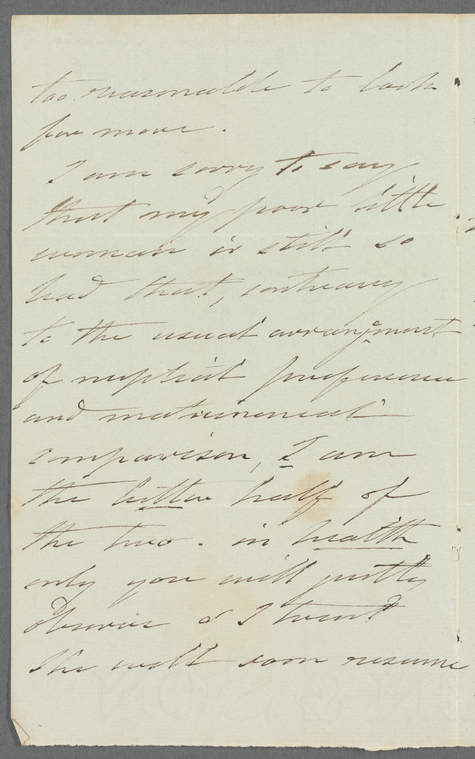 too reasonable to look
for more.
I am sorry to say
that my poor little
woman is still so
bad that, contrary
to the usual arrangment
of nuptial preference
and matrimonial
comparison, I am
the better half of
the two. in health
only you will justly
observe & I trust
she will soon resume